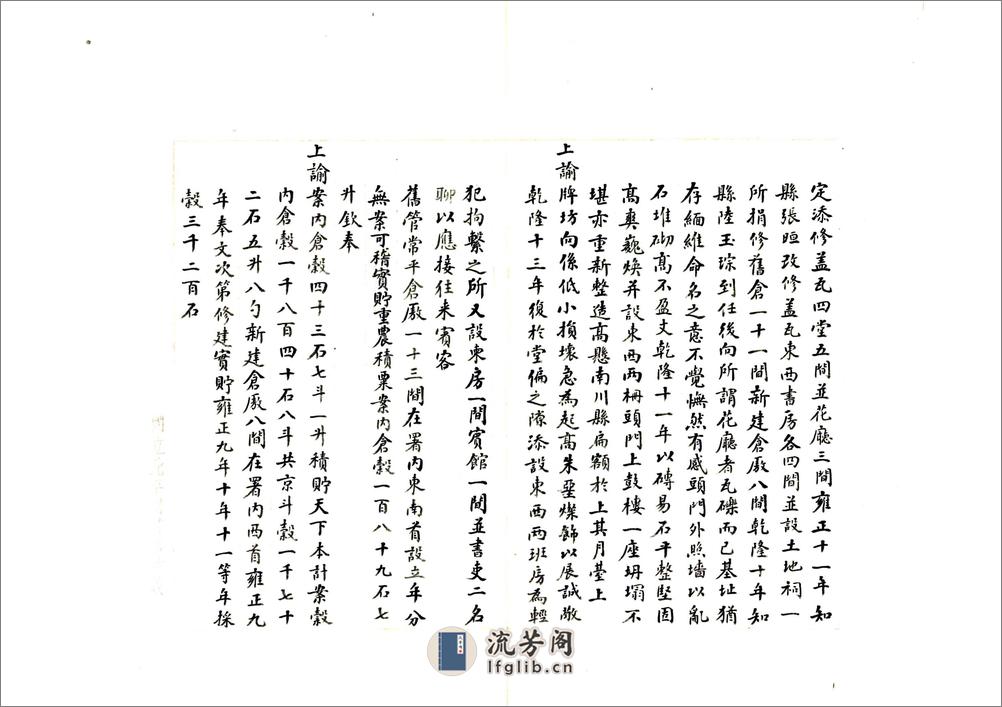 定添修盖瓦四堂五間並花廳三間雍正十一年知
縣張晅改修蓋瓦東西書房各四間並設土地祠一
所捐修舊倉一十一間新建倉廒八間乾隆十年知
縣陸玉琮到任後向所謂花廳者瓦礫而已基址猶
存緬維命名之意不覺憮然有感頭門外照墻以亂
石堆砌高不盈丈乾隆十一年以磚易石平整堅固
高奐巍煥并設東西兩柵頭門上鼓樓一座坍塌不
堪亦重新整造高懸南川縣扁額於上其月臺上
上諭牌坊向係低小損壞急為起高朱堊燦飾以展誠敬
乾隆十三年復於堂偏之隙添設東西兩班房為輕
犯拘繫之所又設東房一間賓館一間並書吏二名
聊以應接往来賓客
舊管常平倉廒一十三間在署内東南首設立年分
無案可稽實貯重農積粟案内倉穀一百八十九石七
升欽奉
上諭案内倉穀四十三石七斗一升積貯天下本計案穀
内倉穀一千八百四十石八斗共京斗穀一千七十
二石五升八勺新建倉廒八間在署内西首雍正九
年奉文次第修建實貯雍正九年十年十一等年採
穀三千二百石
流芳阁
lfglib.cn